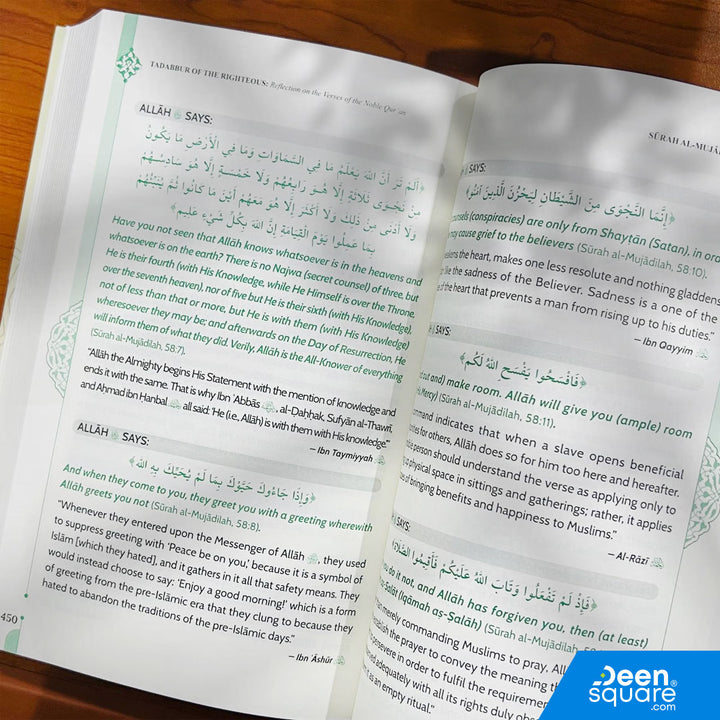 TADABBUR OF THE RIGHTEOUS: Reflection on the Verses of the Noble Qur'an
ALLĀH ﷻ SAYS:
﴿أَلَمْ تَرَ أَنَّ اللَّهَ يَعْلَمُ مَا فِي السَّمَاوَاتِ وَمَا فِي الْأَرْضِ مَا يَكُونُ
مِنْ نَجْوَى ثَلَاثَةٍ إِلَّا هُوَ رَابِعُهُمْ وَلَا خَمْسَةٍ إِلَّا هُوَ سَادِسُهُمْ
وَلَا أَدْنَى مِنْ ذَلِكَ وَلَا أَكْثَرَ إِلَّا هُوَ مَعَهُمْ أَيْنَ مَا كَانُوا ثُمَّ يُنَبِّئُهُمْ
بِمَا عَمِلُوا يَوْمَ الْقِيَامَةِ إِنَّ اللَّهَ بِكُلِّ شَيْءٍ عَلِيمٌ﴾
Have you not seen that Allāh knows whatsoever is in the heavens and
whatsoever is on the earth? There is no Najwa (secret counsel) of three, but
He is their fourth (with His Knowledge, while He Himself is over the Throne,
over the seventh heaven), nor of five but He is their sixth (with His Knowledge),
not of less than that or more, but He is with them (with His Knowledge)
wheresoever they may be; and afterwards on the Day of Resurrection, He
will inform them of what they did. Verily, Allāh is the All-Knower of everything
(Sūrah al-Mujādilah, 58:7).
"Allāh the Almighty begins His Statement with the mention of knowledge and
ends it with the same. That is why Ibn ʿAbbās, al-Ḍaḥḥak, Sufyān al-Thawrī,
and Aḥmad ibn Ḥanbal all said: 'He (i.e., Allāh) is with them with His knowledge'."
— Ibn Taymiyyah
ALLĀH ﷻ SAYS:
﴿وَإِذَا جَاءُوكَ حَيَّوْكَ بِمَا لَمْ يُحَيِّكَ بِهِ اللَّهُ﴾
And when they come to you, they greet you with a greeting wherewith
Allāh greets you not (Sūrah al-Mujādilah, 58:8).
"Whenever they entered upon the Messenger of Allāh ﷺ, they used
to suppress greeting with 'Peace be on you,' because it is a symbol of
Islām [which they hated], and it gathers in it all that safety means. They
would instead choose to say: 'Enjoy a good morning!' which is a form
of greeting from the pre-Islāmic era that they clung to because they
hated to abandon the traditions of the pre-Islamic days."
— Ibn ʿĀshūr
450
SŪRAH AL-MUJĀ
SAYS:
﴿إِنَّمَا النَّجْوَى مِنَ الشَّيْطَانِ لِيَحْزُنَ الَّذِينَ آمَنُوا﴾
(conspiracies) are only from Shayṭān (Satan), in ord
cause grief to the believers (Sūrah al-Mujādilah, 58:10).
the heart, makes one less resolute and nothing gladdens
like the sadness of the Believer. Sadness is a one of the
of the heart that prevents a man from rising up to his duties."
— Ibn Qayyim
SAYS:
﴿فَافْسَحُوا يَفْسَحِ اللَّهُ لَكُمْ﴾
out and) make room. Allāh will give you (ample) room
Mercy) (Sūrah al-Mujādilah, 58:11).
indicates that when a slave opens beneficial
for others, Allāh does so for him too here and hereafter.
person should understand the verse as applying only to
physical space in sittings and gatherings; rather, it applies
of bringing benefits and happiness to Muslims."
— Al-Rāzī
SAYS:
﴿فَإِذْ لَمْ تَفْعَلُوا وَتَابَ اللَّهُ عَلَيْكُمْ فَأَقِيمُوا الصَّلَاةَ
do it not, and Allāh has forgiven you, then (at least)
Ṣalāt (Iqāmah as-Ṣalāh) (Sūrah al-Mujādilah, 58:
merely commanding Muslims to pray, Al
the prayer to convey the meaning th
persevere in order to fulfil the requirement
adequately with all its rights duly obs
as an empty ritual."
Deen
square®
.com